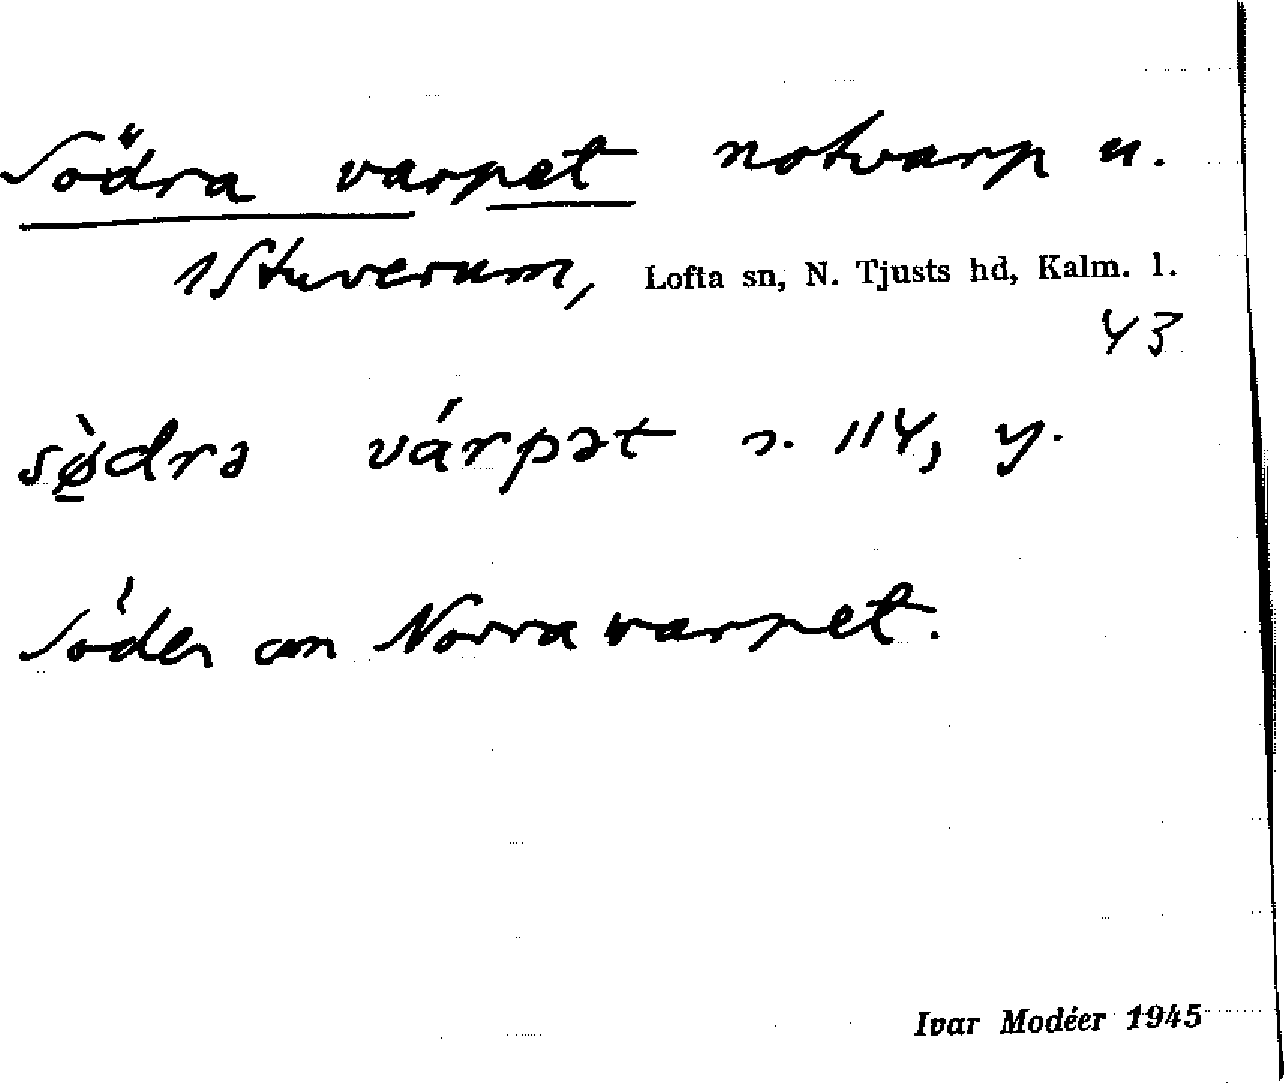 Södra varpet notvarp u.
1 Stuverum, Lofta sn, N. Tjusts hd, Kalm. l.
43
sø̀drə várpət s. 114, y.
Söder om Norra varpet.
Ivar Modéer 1945